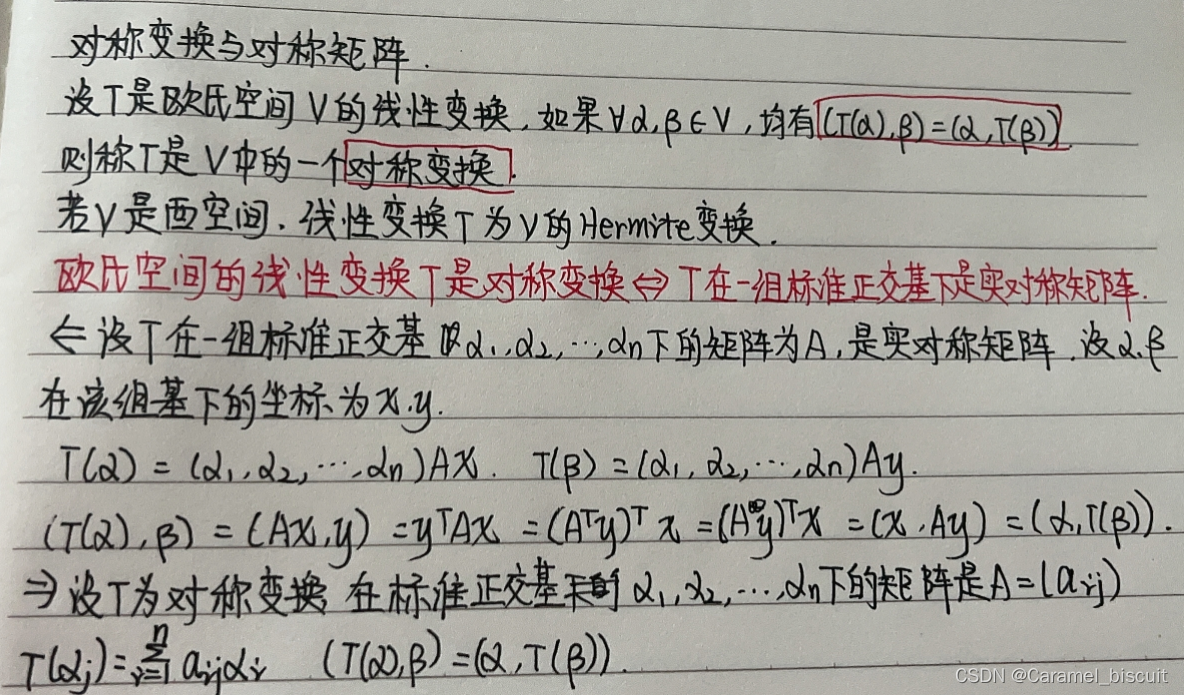 对称变换与对称矩阵.
设T是欧氏空间V的线性变换,如果∀α,β∈V,均有(T(α),β)=(α,T(β))
则称T是V中的一个对称变换.
若V是酉空间.线性变换T为V的Hermite变换.
欧氏空间的线性变换T是对称变换⇔T在一组标准正交基下是实对称矩阵.
⇐设T在一组标准正交基α₁,α₂,…,αn下的矩阵为A,是实对称矩阵.设α.β
在该组基下的坐标为x.y.
T(α)=(α₁,α₂,…,αn)Ax. T(β)=(α₁,α₂,…,αn)Ay.
(T(α),β)=(Ax,y)=yᵀAx=(Aᵀy)ᵀx=(Ay)ᵀx=(x,Ay)=(α,T(β)).
⇒设T为对称变换 在标准正交基 α₁,α₂,…,αn下的矩阵是A=(aij)
T(αj)=∑ⁿᵢ₌₁aijαi (T(α),β)=(α,T(β)).
CSDN @Caramel_biscuit